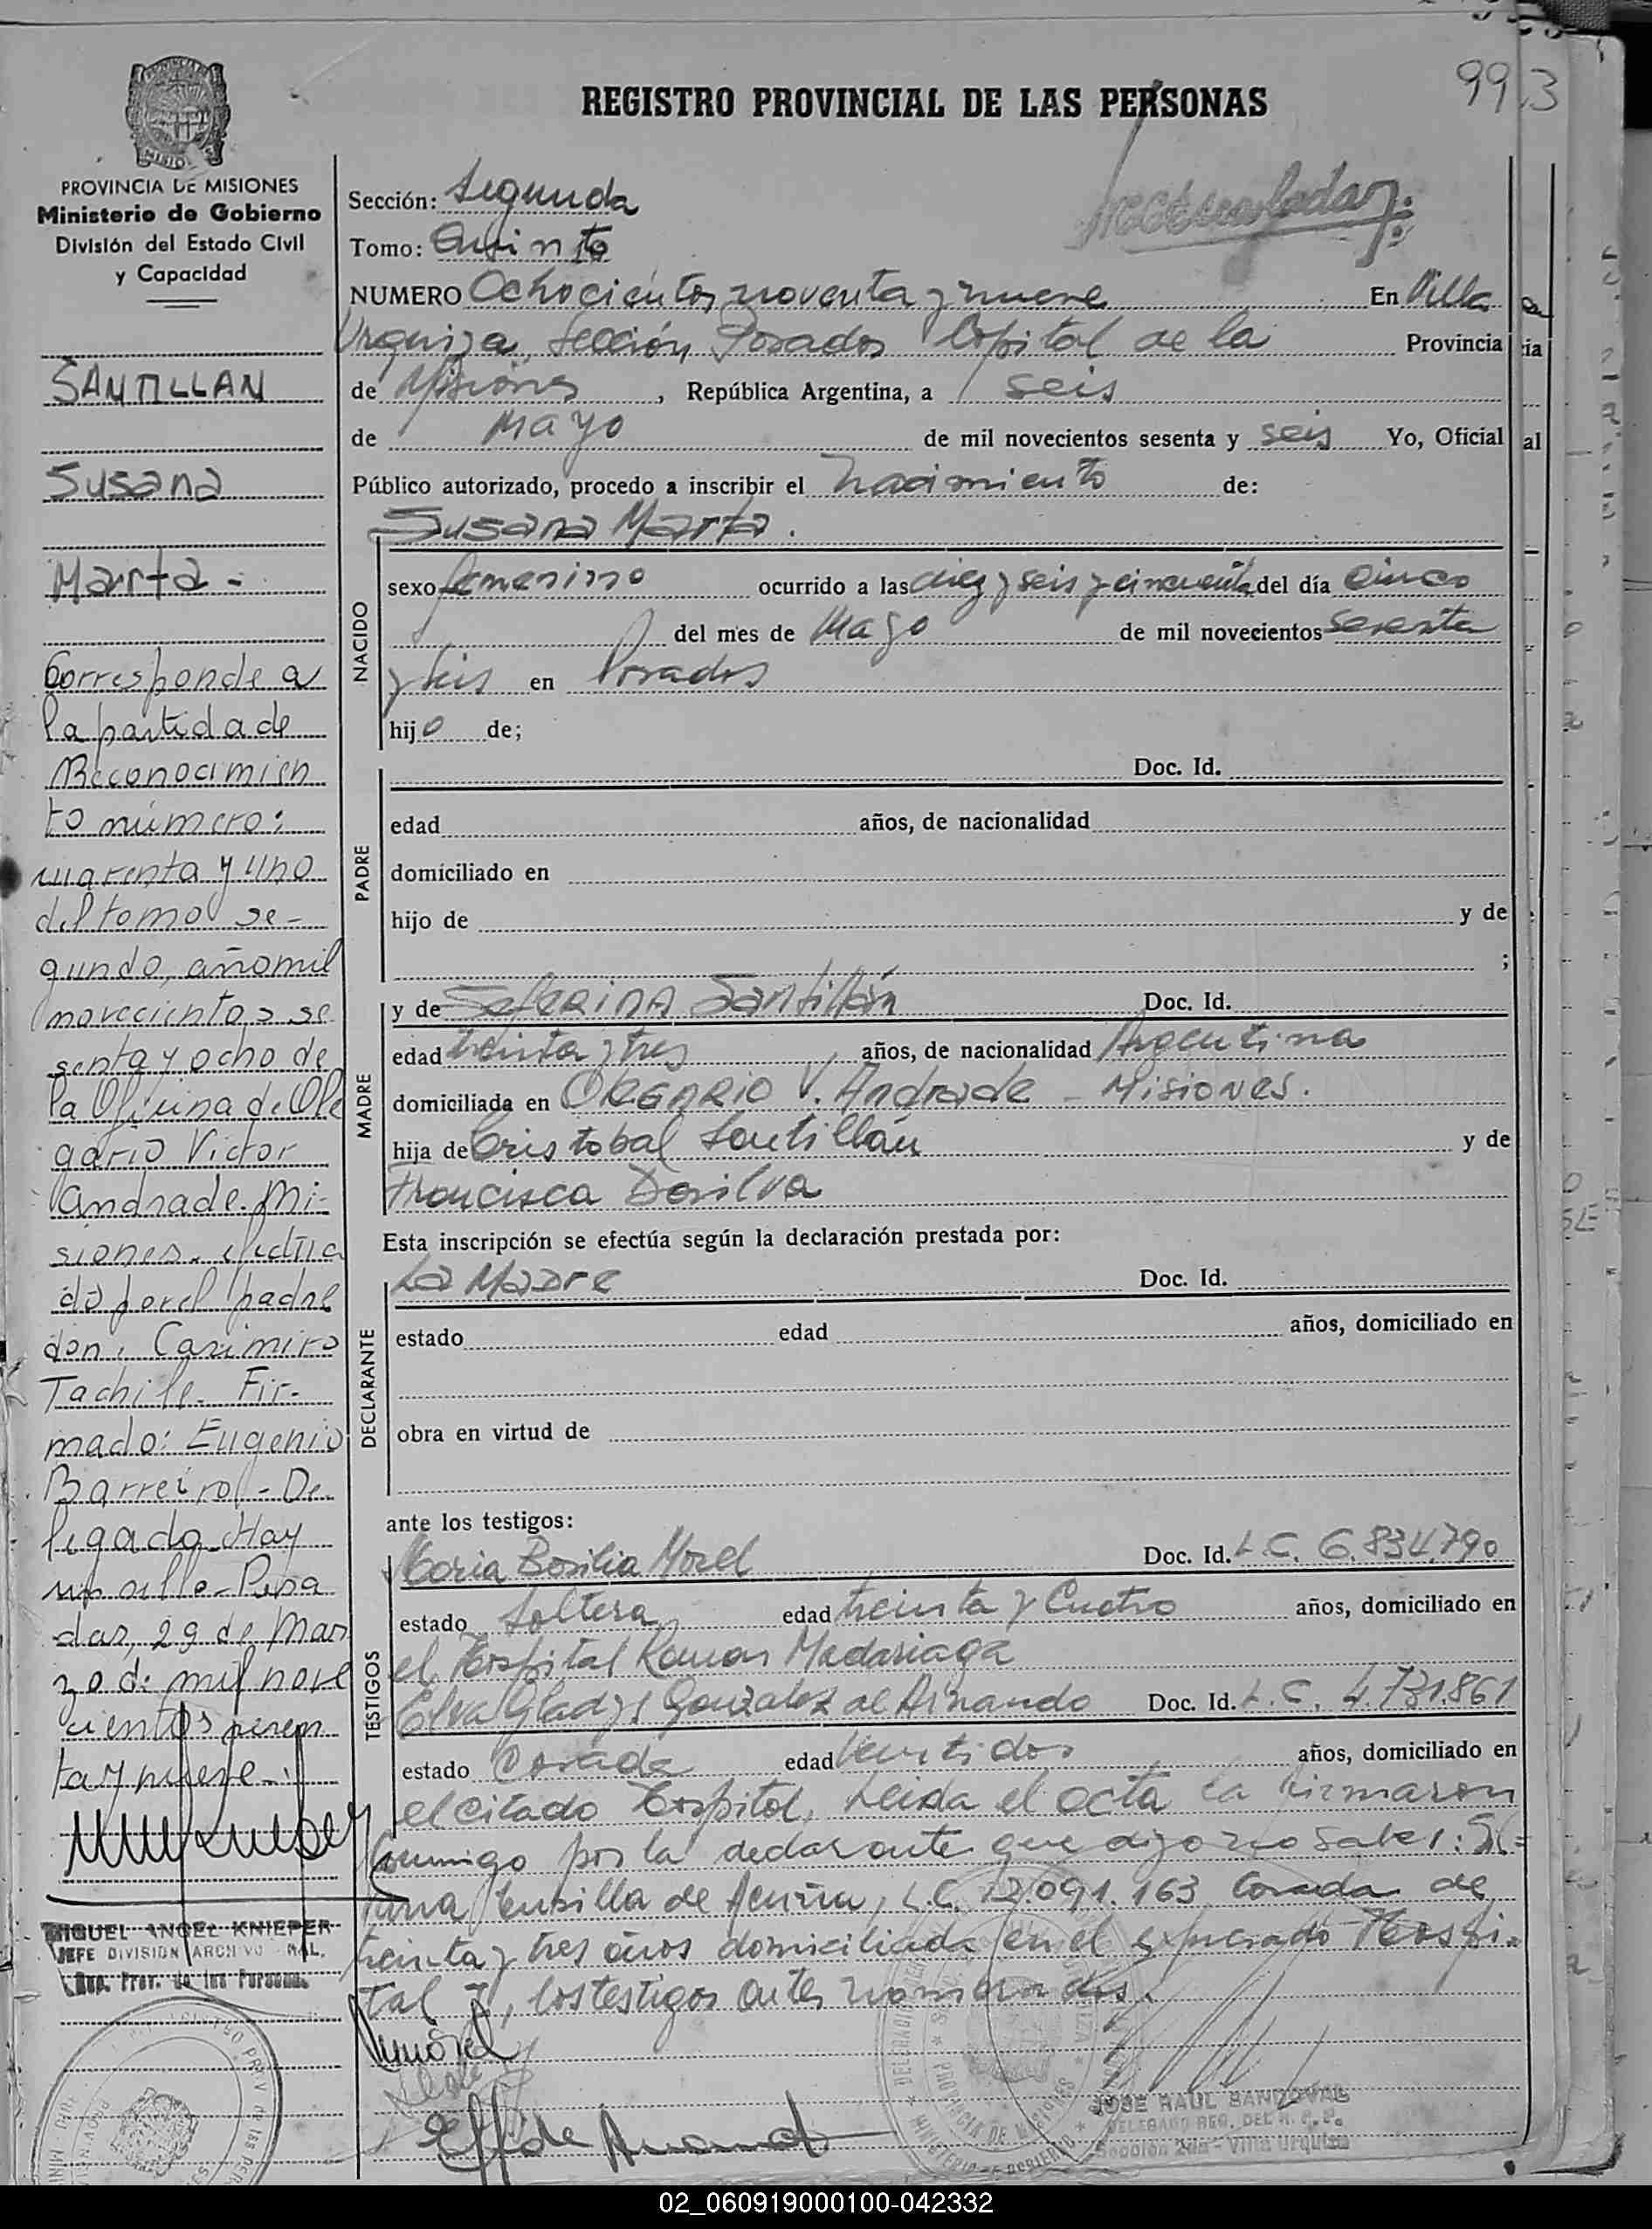 99
3
REGISTRO PROVINCIAL DE LAS PERSONAS
PROVINCIA DE MISIONES
Ministerio de Gobierno
División del Estado Civil
y Capacidad
SANTILLAN
Susana
Marta -
Corresponde a
la partida de
Reconocimien
to número:
cuarenta y uno
del tomo se-
gundo, año mil
novecientos se
senta y ocho de
la Oficina de Ole
gario Victor
Andrade. Mi-
siones. efectua
do por el padre
don: Casimiro
Tachile. Fir-
mado: Eugenio
Barreiro - De
legado. Hay
un sello - Posa
das, 29 de Mar
zo de mil nove
cientos sesen
ta y nueve -
MIGUEL ANGEL KNIEPER
JEFE DIVISION ARCHIVO GRAL.
Reg. Prov. de las Personas
Sección: Segunda
Tomo: Quinto
NUMERO Ochocientos noventa y nueve En Villa
Urquiza, Sección Posadas Capital de la Provincia
de Misiones, República Argentina, a seis
de Mayo de mil novecientos sesenta y seis Yo, Oficial
Público autorizado, procedo a inscribir el nacimiento de:
Susana Marta.
NACIDO
sexo femenino ocurrido a las diez y seis y cincuenta del día cinco
del mes de Mayo de mil novecientos sesenta
y seis en Posadas
hijo de;
PADRE
Doc. Id.
edad años, de nacionalidad
domiciliado en
hijo de y de
;
MADRE
y de Seferina Santillán Doc. Id.
edad treinta y tres años, de nacionalidad Argentina
domiciliada en Olegario V. Andrade - Misiones.
hija de Cristobal Santillán y de
Francisca Dasilva
Esta inscripción se efectúa según la declaración prestada por:
DECLARANTE
La Madre Doc. Id.
estado edad años, domiciliado en
obra en virtud de
ante los testigos:
TESTIGOS
Maria Basilia Morel Doc. Id. L.C. 6.834.790
estado Soltera edad treinta y Cuatro años, domiciliado en
el Hospital Ramon Madariaga
Elva Gladys Gonzalez de Arnando Doc. Id. L.C. 4.731.861
estado Casada edad Veintidos años, domiciliado en
el citado Hospital, Leida el acta la firmaron
Conmigo por la declarante que dijo no saber:
de Acuña, L.C. 12.091.163 Casada de
treinta y tres años domiciliada en el expresado Hospi-
tal y, los testigos antes nombrados.
JOSE RAUL SANDOVAL
DELEGADO REG. DEL R. C. P.
Sección 2da - Villa Urquiza
PROVINCIA DE MISIONES
MINISTERIO DE GOBIERNO
02_060919000100-042332